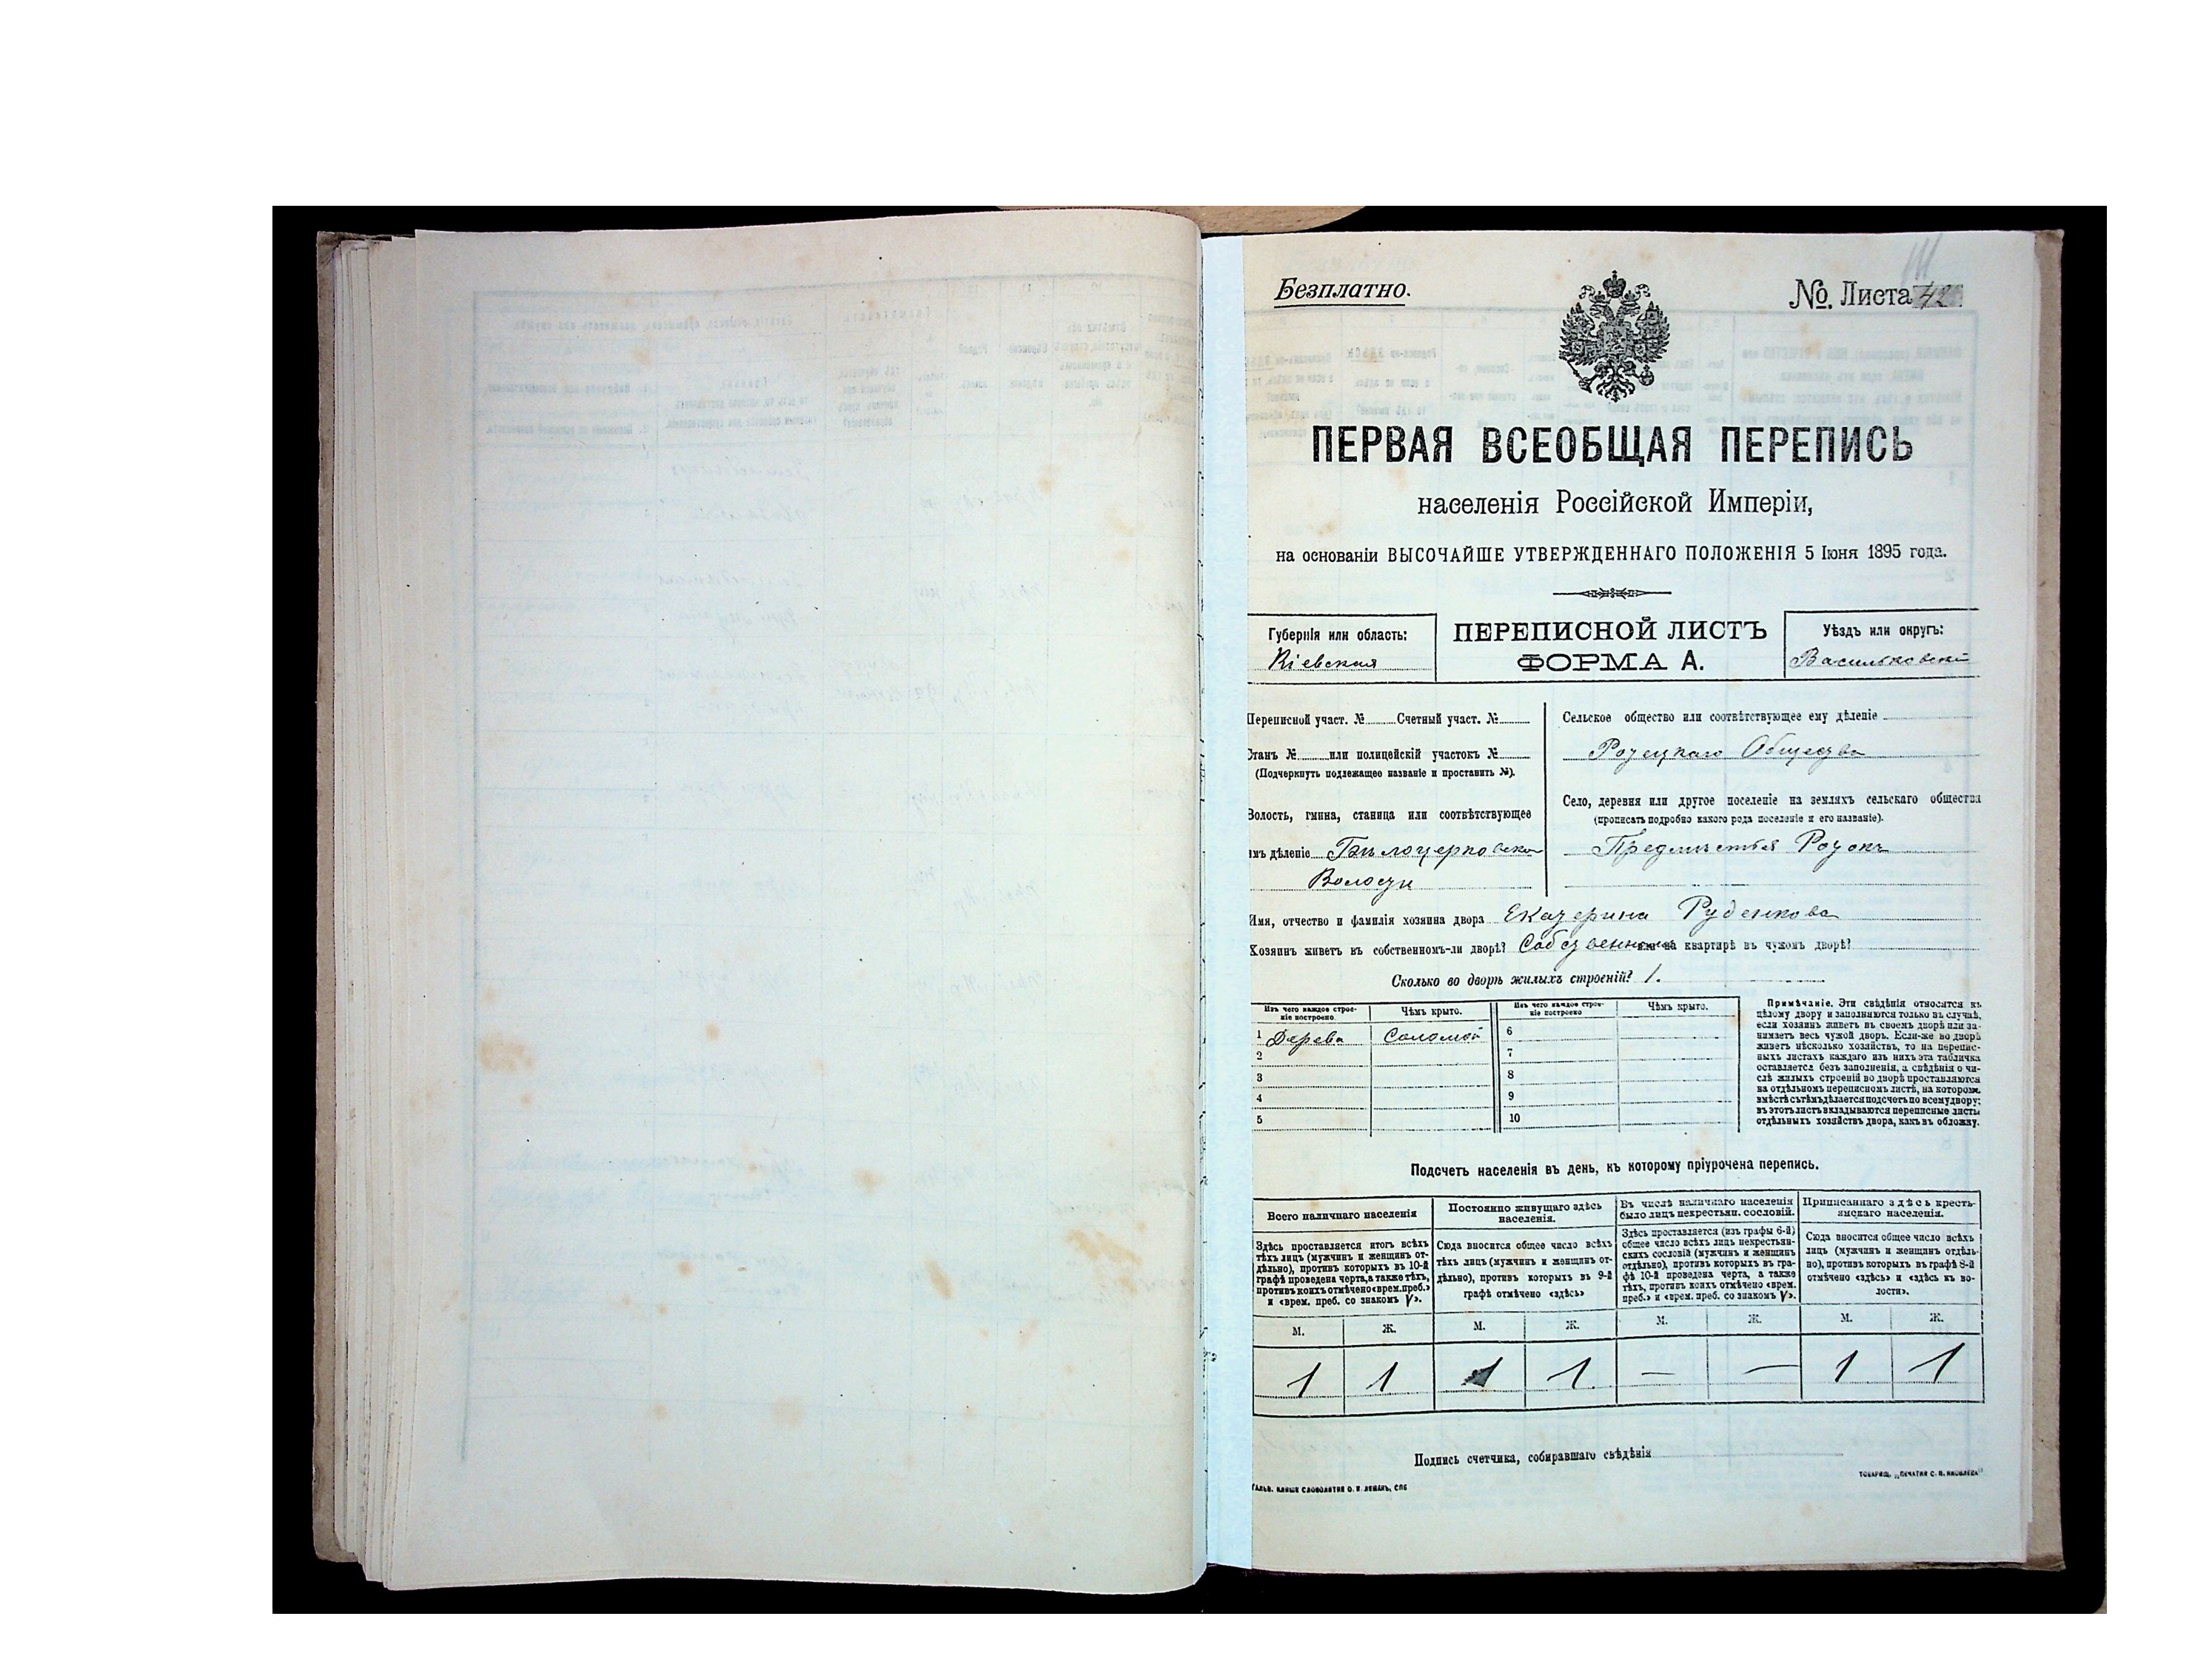 Безплатно.
№. Листа 42
ПЕРВАЯ ВСЕОБЩАЯ ПЕРЕПИСЬ
населенія Россійской Имперіи,
на основаніи ВЫСОЧАЙШЕ УТВЕРЖДЕННАГО ПОЛОЖЕНІЯ 5 Іюня 1895 года.
Губернія или область:
Кіевская
ПЕРЕПИСНОЙ ЛИСТЪ
ФОРМА А.
Уѣздъ или округъ:
Васильковскій
Переписной участ. № Счетный участ. №
Станъ № или полицейскій участокъ №
(Подчеркнуть подлежащее названіе и проставить №).
Волость, гмина, станица или соотвѣтствующее
имъ дѣленіе Бѣлоцерковской
Волости
Сельское общество или соотвѣтствующее ему дѣленіе
Ротецкаго Общества
Село, деревня или другое поселеніе на земляхъ сельскаго общества
(прописать подробно какого рода поселеніе и его названіе).
Предмѣстья Ротокъ
Имя, отчество и фамилія хозяина двора Екатерина Руденкова
Хозяинъ живетъ въ собственномъ-ли дворѣ? Собственномъ или на квартирѣ въ чужомъ дворѣ?
Сколько во дворѣ жилыхъ строеній? 1.
Изъ чего каждое строе-
ніе построено
Чѣмъ крыто.
Изъ чего каждое строе-
ніе построено
Чѣмъ крыто.
1 Дерева Соломой 6
2 7
3 8
4 9
5 10
Примѣчаніе. Эти свѣдѣнія относятся къ
цѣлому двору и заполняются только въ случаѣ,
если хозяинъ живетъ въ своемъ дворѣ или за-
нимаетъ весь чужой дворъ. Если-же во дворѣ
живетъ нѣсколько хозяйствъ, то на перепис-
ныхъ листахъ каждаго изъ нихъ эта табличка
оставляется безъ заполненія, а свѣдѣнія о чи-
слѣ жилыхъ строеній во дворѣ проставляются
на отдѣльномъ переписномъ листѣ, на которомъ
вмѣстѣ съ тѣмъ дѣлается подсчетъ по всему двору;
въ этотъ листъ вкладываются переписные листы
отдѣльныхъ хозяйствъ двора, какъ въ обложку.
Подсчетъ населенія въ день, къ которому пріурочена перепись.
Всего наличнаго населенія
Здѣсь проставляется итогъ всѣхъ
тѣхъ лицъ (мужчинъ и женщинъ от-
дѣльно), противъ которыхъ въ 10-й
графѣ проведена черта, а также тѣхъ,
противъ коихъ отмѣчено «врем. преб.»
и «врем. преб. со знакомъ V».
Постоянно живущаго здѣсь
населенія.
Сюда вносится общее число всѣхъ
тѣхъ лицъ (мужчинъ и женщинъ от-
дѣльно), противъ которыхъ въ 9-й
графѣ отмѣчено «здѣсь»
Въ числѣ наличнаго населенія
было лицъ некрестьян. сословій.
Здѣсь проставляется (изъ графы 6-й)
общее число всѣхъ лицъ некрестьян-
скихъ сословій (мужчинъ и женщинъ
отдѣльно), противъ которыхъ въ гра-
фѣ 10-й проведена черта, а также
тѣхъ, противъ коихъ отмѣчено «врем.
преб.» и «врем. преб. со знакомъ V».
Приписаннаго здѣсь кресть-
янскаго населенія.
Сюда вносится общее число всѣхъ
лицъ (мужчинъ и женщинъ отдѣль-
но), противъ которыхъ въ графѣ 8-й
отмѣчено «здѣсь» и «здѣсь къ во-
лости».
М. Ж. М. Ж. М. Ж. М. Ж.
1 1 1 1 — — 1 1
Подпись счетчика, собиравшаго свѣдѣнія
СЛОВОЛИТНИ О. И. ЛЕМАНЪ, СПБ
ТОВАРИЩ. „ПЕЧАТНЯ С. П. ЯКОВЛЕВА"